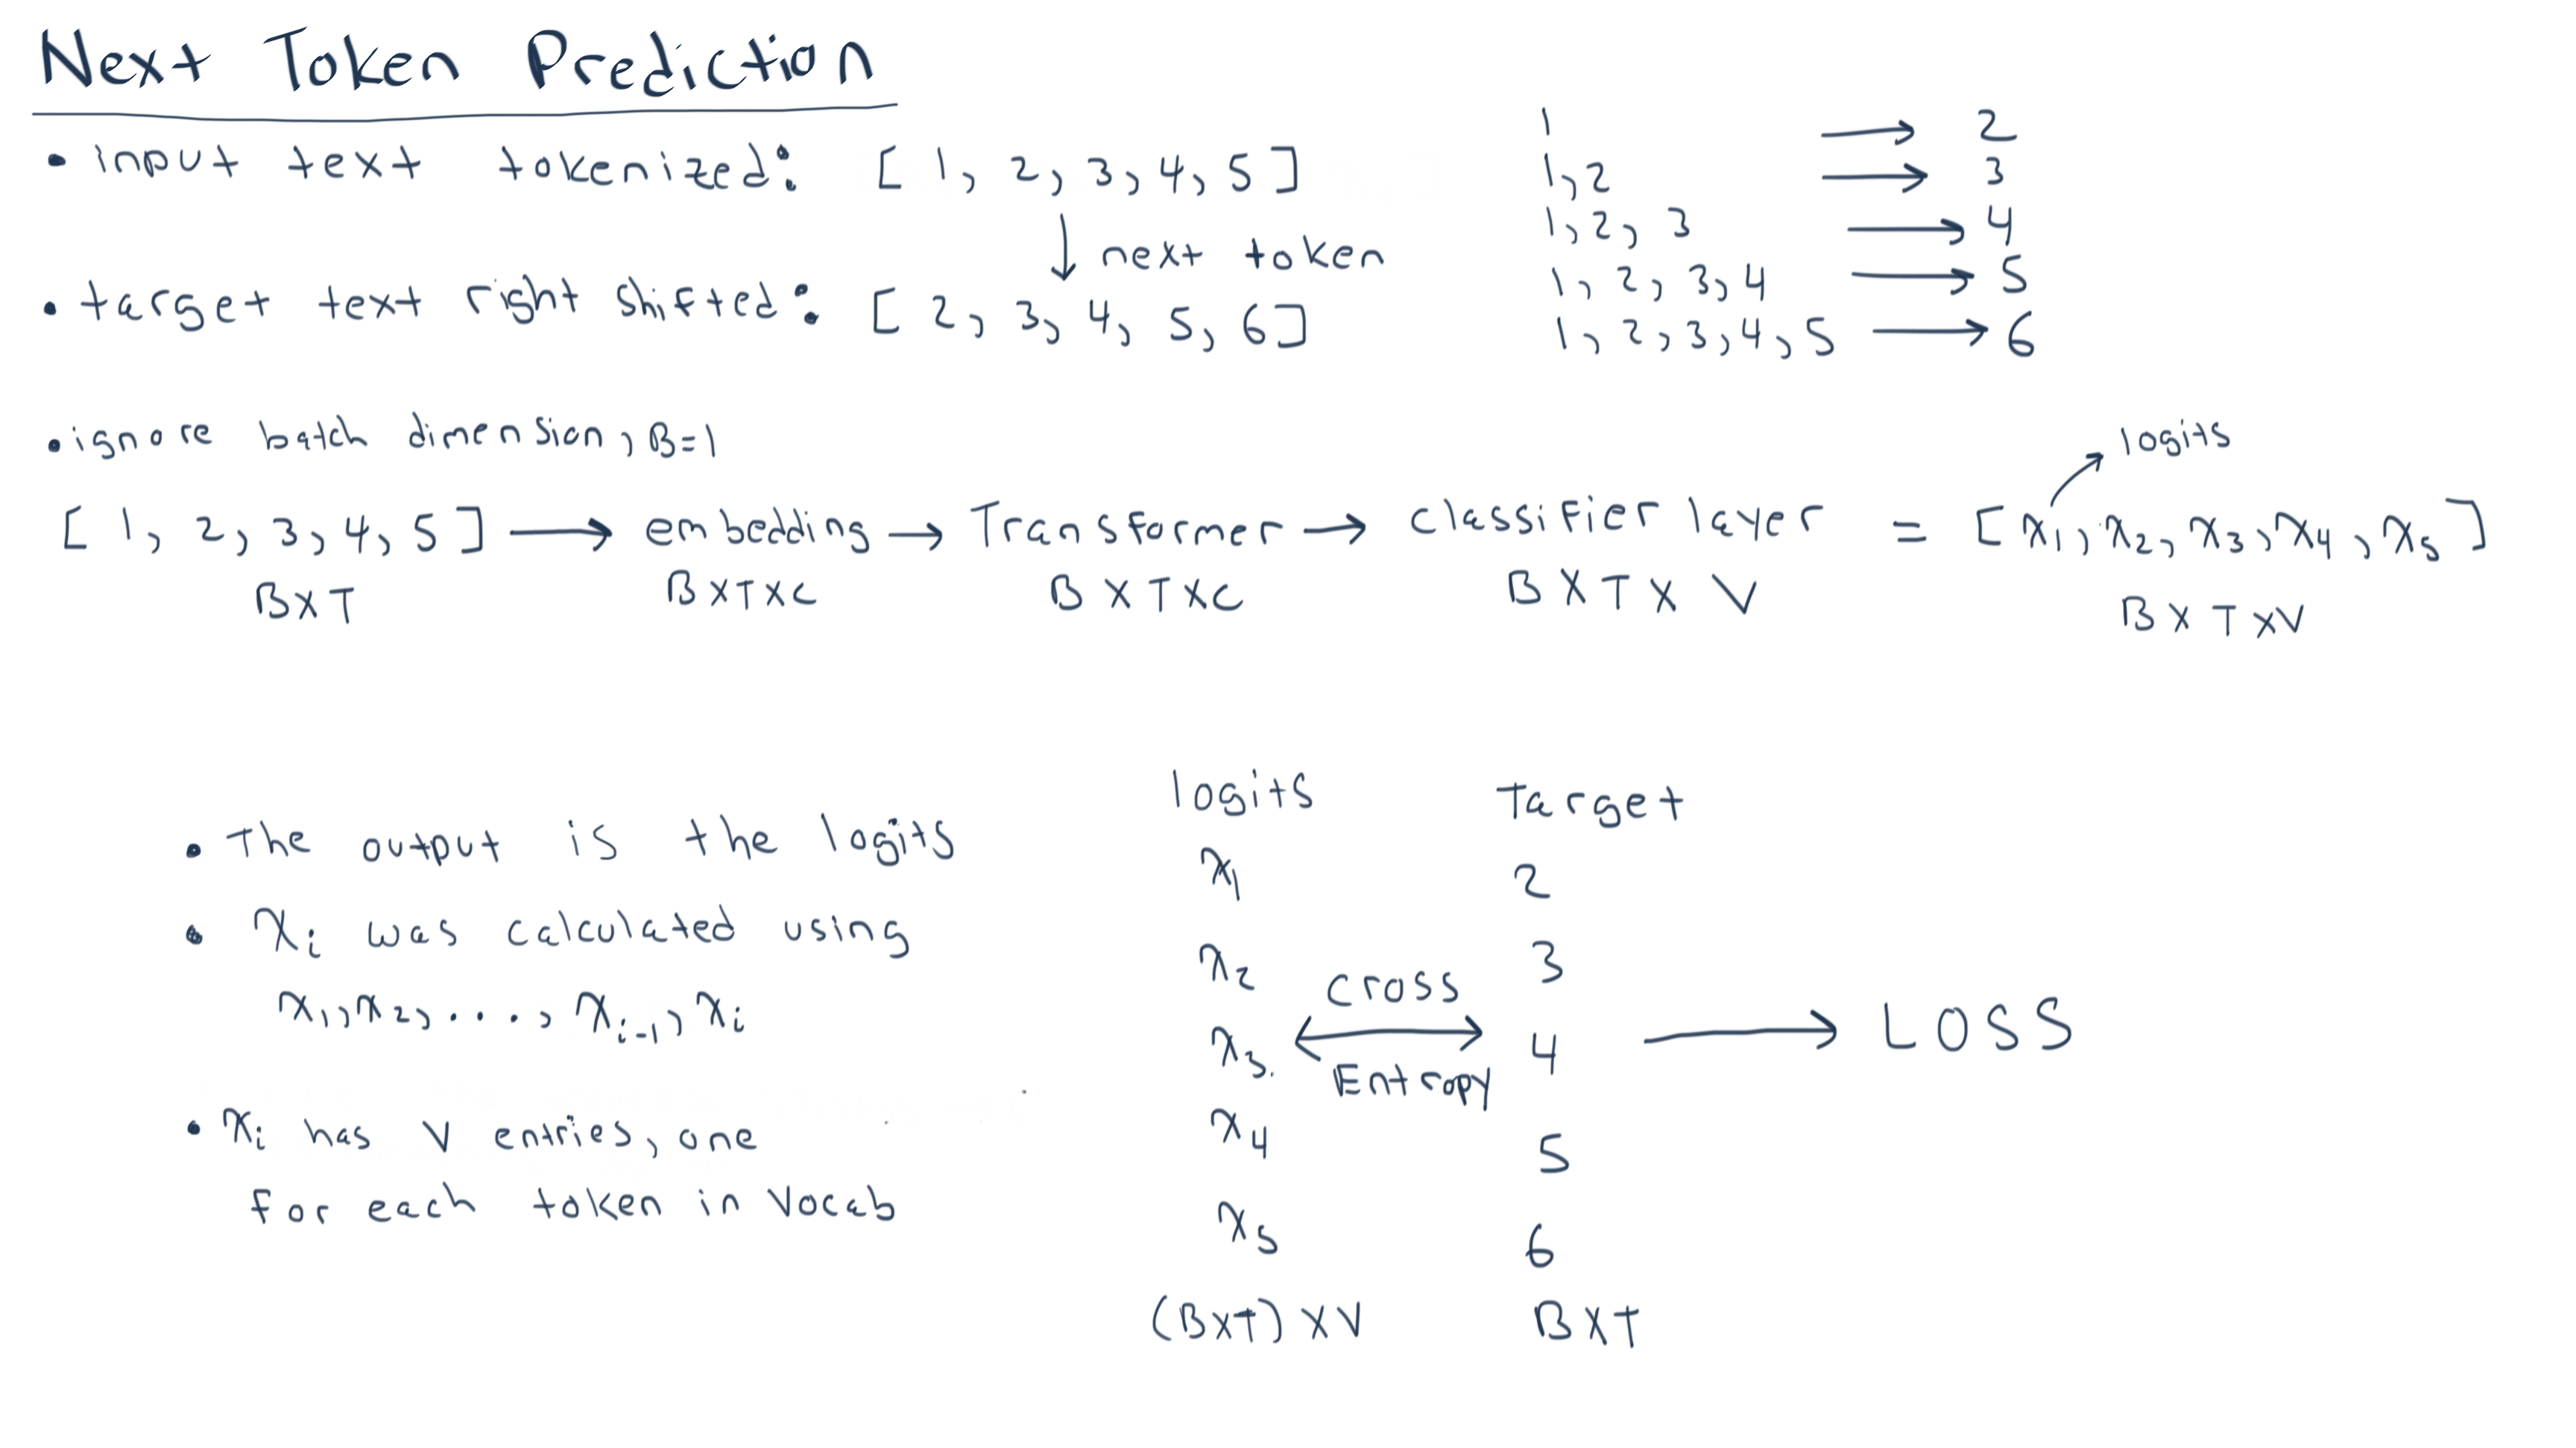 Next Token Prediction
• input text tokenized: [ 1, 2, 3, 4, 5 ]
↓ next token
• target text right shifted: [ 2, 3, 4, 5, 6 ]
1 → 2
1, 2 → 3
1, 2, 3 → 4
1, 2, 3, 4 → 5
1, 2, 3, 4, 5 → 6
• ignore batch dimension, B=1
logits
[ 1, 2, 3, 4, 5 ] → embedding → Transformer → classifier layer = [ x₁, x₂, x₃, x₄, x₅ ]
BXT BXTXC BXTXC BXTXV BXTXV
• The output is the logits
• xᵢ was calculated using
x₁, x₂, ...., xᵢ₋₁, xᵢ
• xᵢ has V entries, one
for each token in Vocab
logits Target
x₁ 2
x₂ 3
x₃ ← cross Entropy → 4 → LOSS
x₄ 5
x₅ 6
(BXT) XV BXT